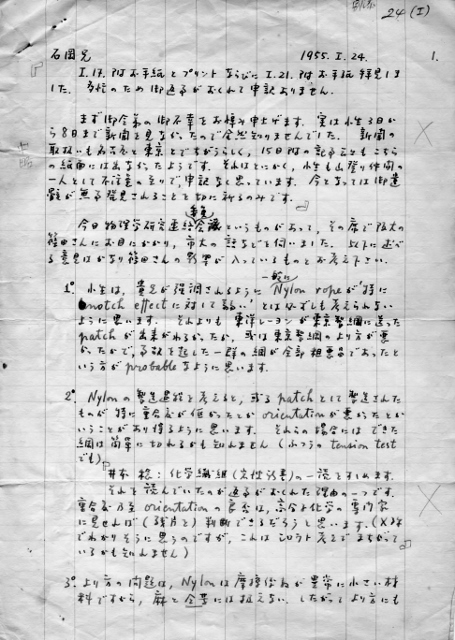 24 (I)
石岡兄 1955. I. 24. 1.
I. 17. 附お手紙とプリントならびに I. 21. 附お手紙拝見しま
した。多忙のため御返事がおくれて申訳ありません。
まず御令弟の御不幸をお悼み申上げます。実は小生3日か
ら8日まで新聞を見なかったので全然知りませんでした。新聞の
取扱いも名古屋と東京とでちがうらしく、15日附の記事もこちら
の紙面には出なかったようです。それはとにかく、小生も山登り仲間の
一人として不注意の至りで、申訳なく思っています。今となっては御遺
骸が無事発見されることを切に祈るのみです。
今日物理学研究連絡委員会議というものがあって、その席で阪大の
篠田さんにお目にかかり、市大の話などを伺いました。以下に述べ
る意見はかなり篠田さんの影響が入っているものとお考え下さい。
1° 小生は、貴兄が強調されるように 一般に Nylon rope が "特に
notch effect に対して弱い" とは必ずしも考えられない
ように思います。それよりも東洋レーヨンが東京製綱に送った
patch が出来がわるかったか、或は東京製綱のより方が悪
かったかで、事故を起した一群の綱が全部粗悪品であったと
いう方が probable なように思います。
2° Nylon の製造過程を考えると、或る patch として製造された
ものが特に重合度が低かったとか orientation が悪かったとか
いうことがあり得るように思います。それらの場合にはできた
綱は簡単に切れるかも知れません (ふつうの tension test
でも)。
井本 稔: 化学繊維 (岩波新書) の一読をすすめます。
それを読んでいたのが返事がおくれた理由の一つです。
重合度乃至 orientation の良否は、高分子化学の専門家
に見せれば (残片を) 判断できるだろうと思います。(X線
でわかりそうに思うのですが、これはシロウト考えでまちがって
いるかも知れません)
3° より方の問題は、Nylon は摩擦係数が異常に小さい材
料ですから、麻と全芋には扱えない。したがってより方にも